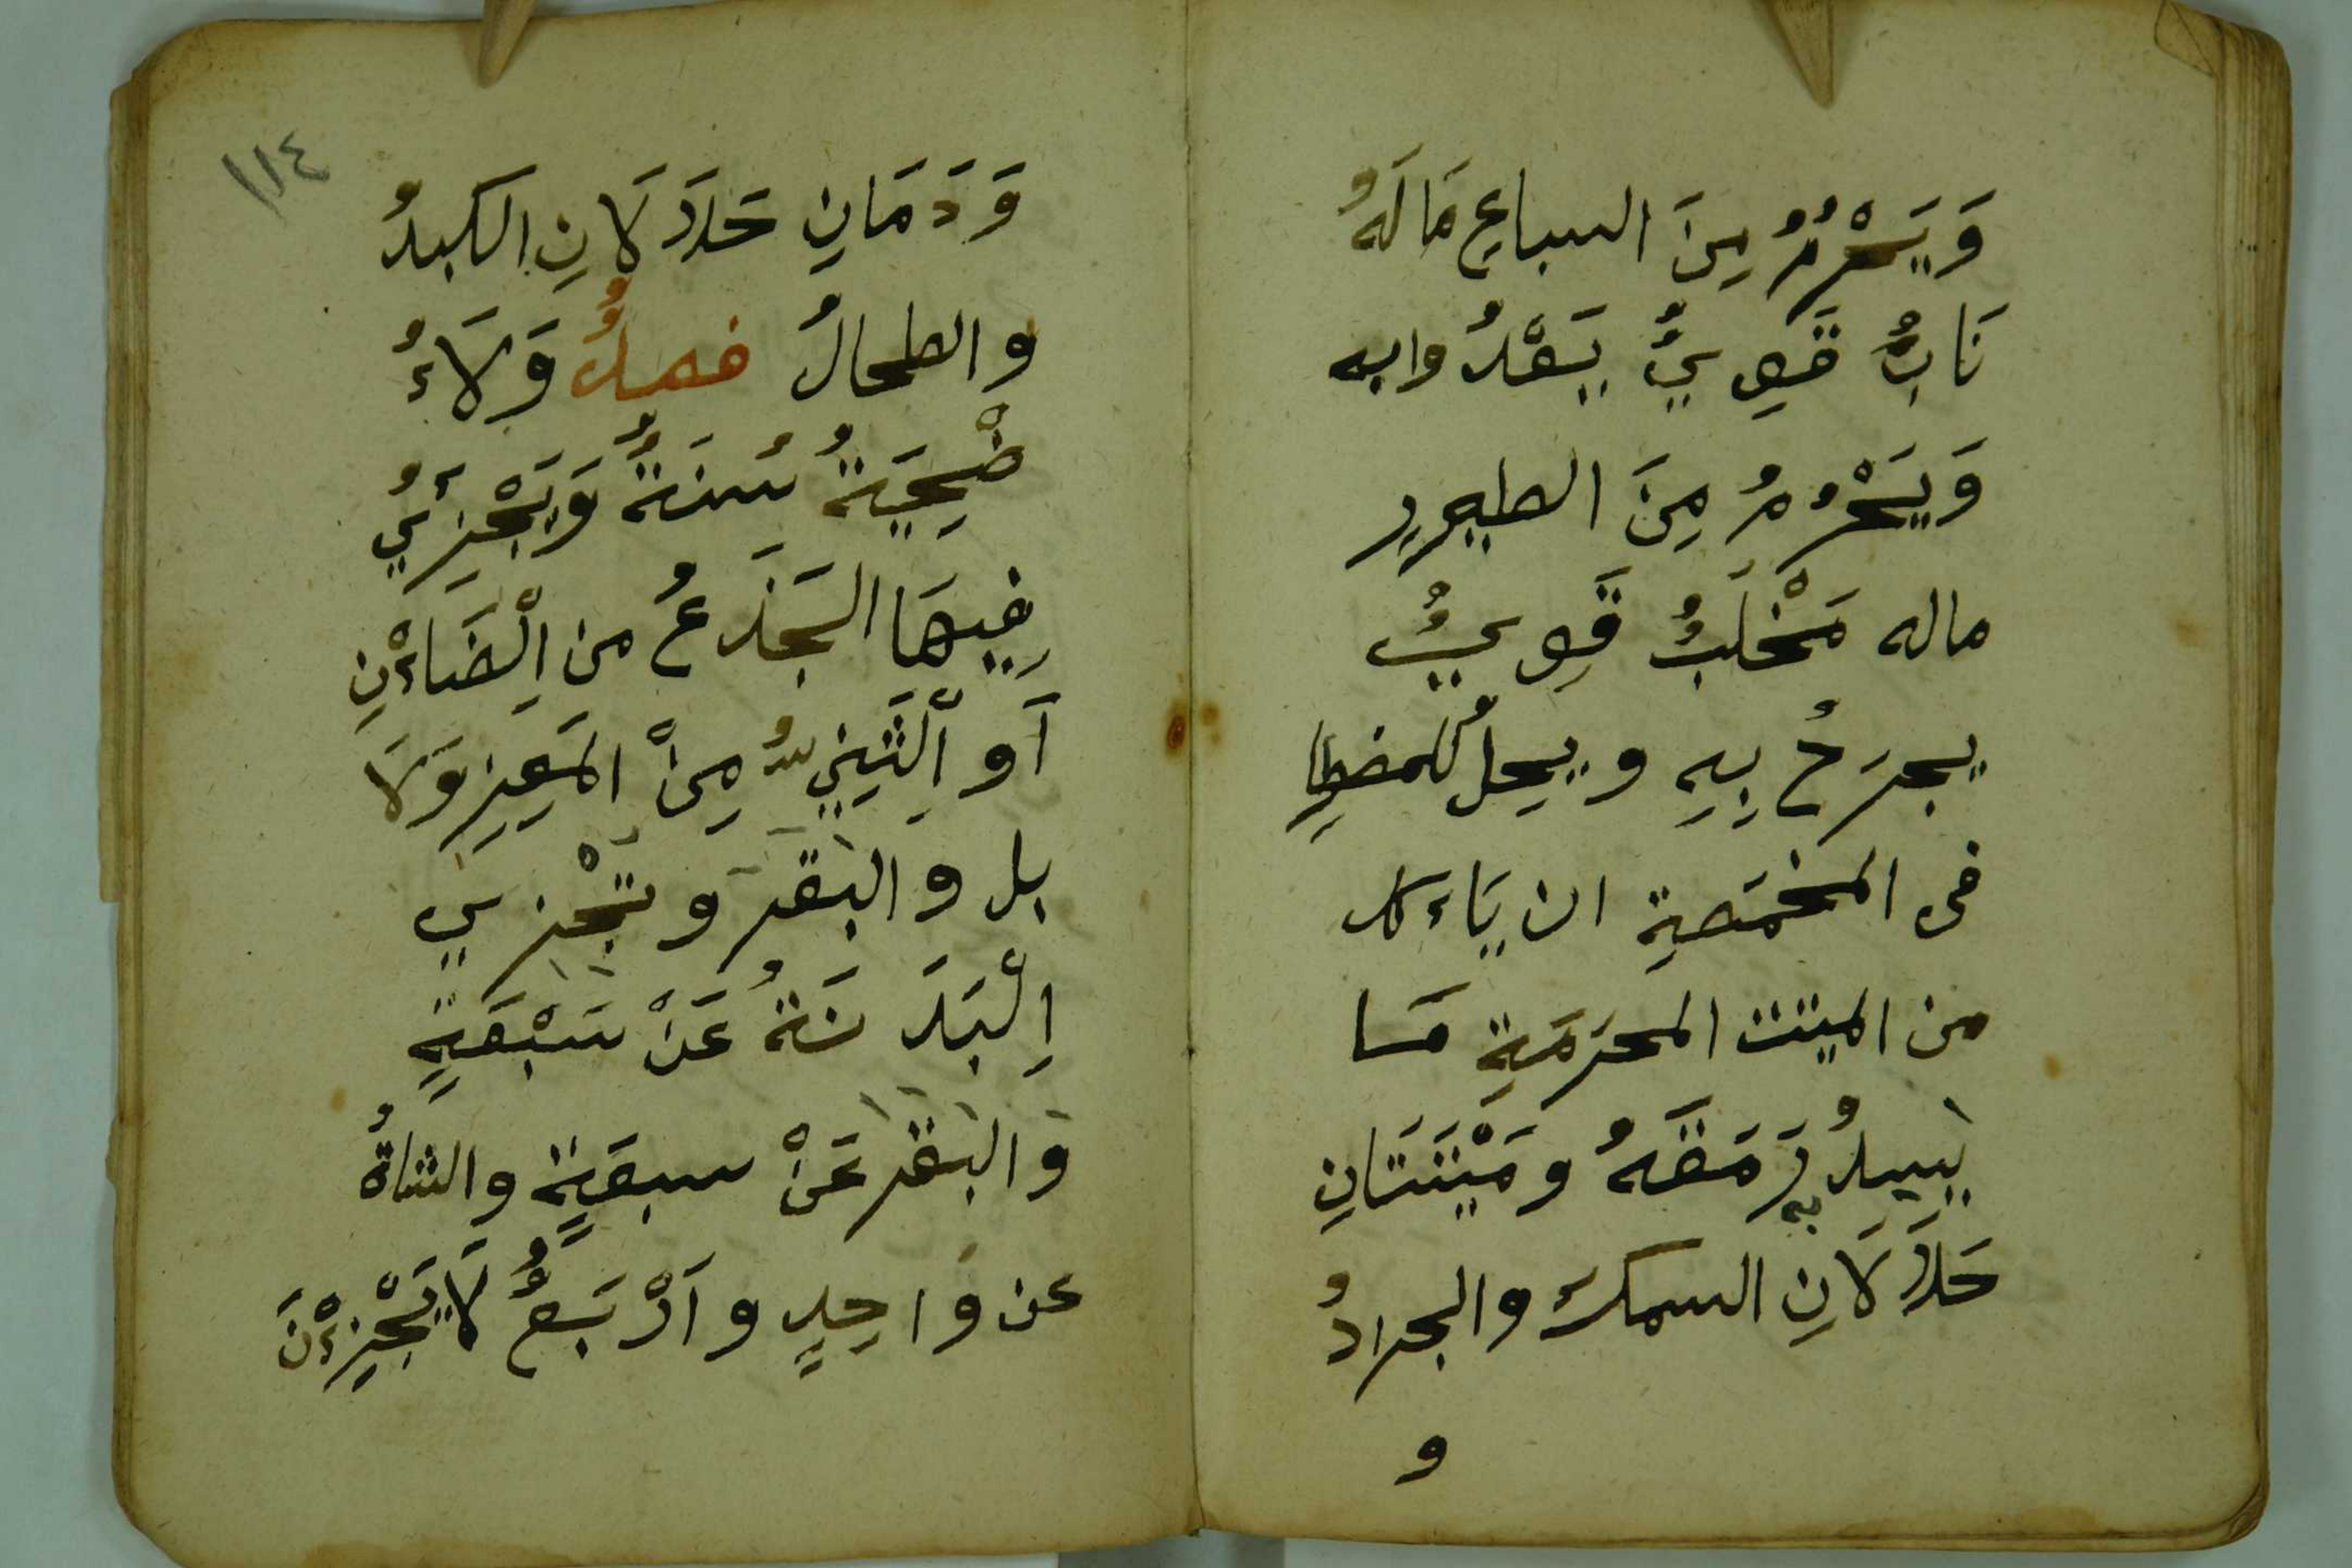 وَيَحْرُمُ مِنَ السباعِ مَا لَهُ
نَابٌ قَوِيٌّ يَعْدُوا به
وَيَحْرُمُ مِنَ الطيورِ
ماله مَخْلَبٌ قَوِيٌّ
يجرَحُ بِهِ ويحِلُّ للمضطِا
فى المخمَصةِ ان يَاءكل
من الميتت المحرَمَةِ مَا
يَسِدُ بِه رَمَقَهُ ومَيْتَتَانِ
حَلَالَانِ السمكُ والجرادُ
و
١١٤
وَدَمَانِ حَلَالَانِ الكبدُ
والطحالُ فصلٌ وَلَاءُ
ضْحِيَةُ سُنةٌ وَيَجْزِئُ
فِيهَا الجَذَعُ مِن الْضَاءْنِ
اَو الْثَنِيُّ مِنْ المَعِزِ وَلَا
بل والبقر وتَجْزي
اِلْبَدَنَةُ عَنْ سَبْعَةٍ
وَالبَقر عَنْ سبعَةٍ والشاةُ
عن وَاحِدٍ واَرْبَعٌ لَا يَجْزِءْنَ